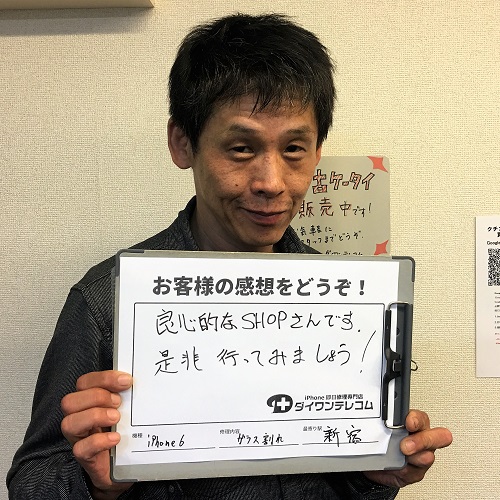 古ケータイ
販売中です!
気軽に
スタッフまでどうぞ。
お客様の感想をどうぞ！
良心的なSHOPさんです.
是非 行ってみましょう!
iPhone 即日修理専門店
ダイワンテレコム
機種 iPhone6 修理内容 ガラス割れ 最寄り駅 新宿
クチ
Google